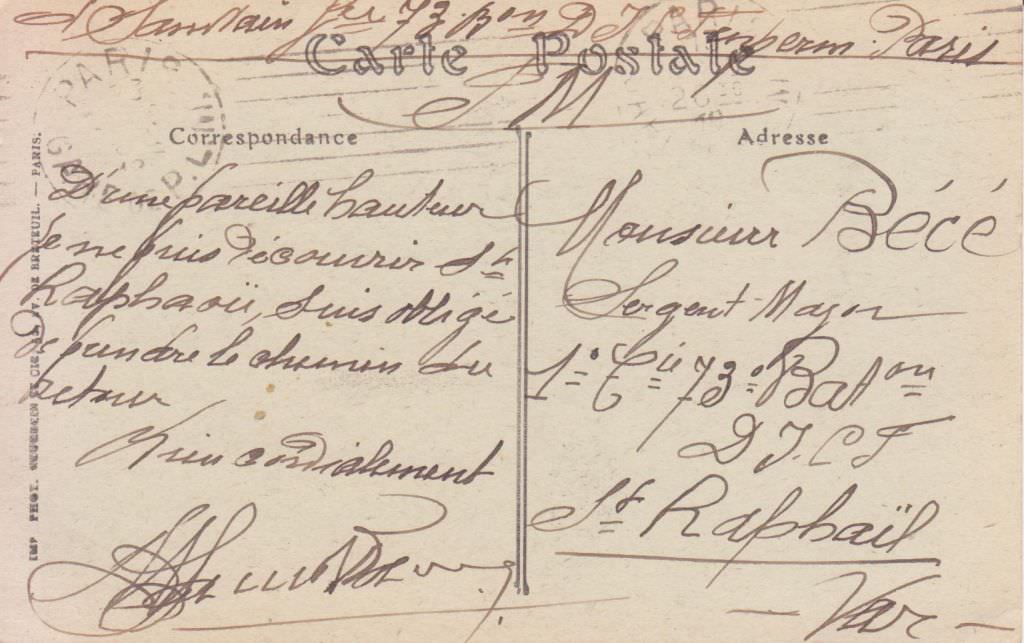 73 Bon D I C F en perm. Paris
Carte Postale
F M
PARIS
Correspondance
Adresse
D'une pareille hauteur
Je ne puis découvrir St
Raphaël, suis obligé
de prendre le chemin du
retour
Bien cordialement
Monsieur Bécé
Sergent-Major
1e Cie 73e Baton
D I. C F
St Raphaël
Var
IMP. PHOT. DE BRETEUIL. — PARIS.